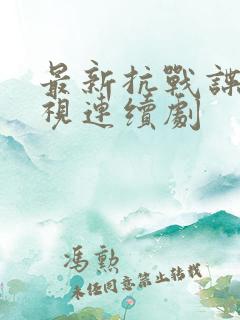 最新抗戰諜
視連續劇
馮勲
未经同意禁止转载